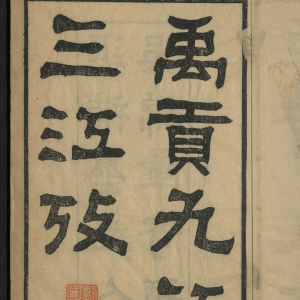 禹貢九江
三江攷